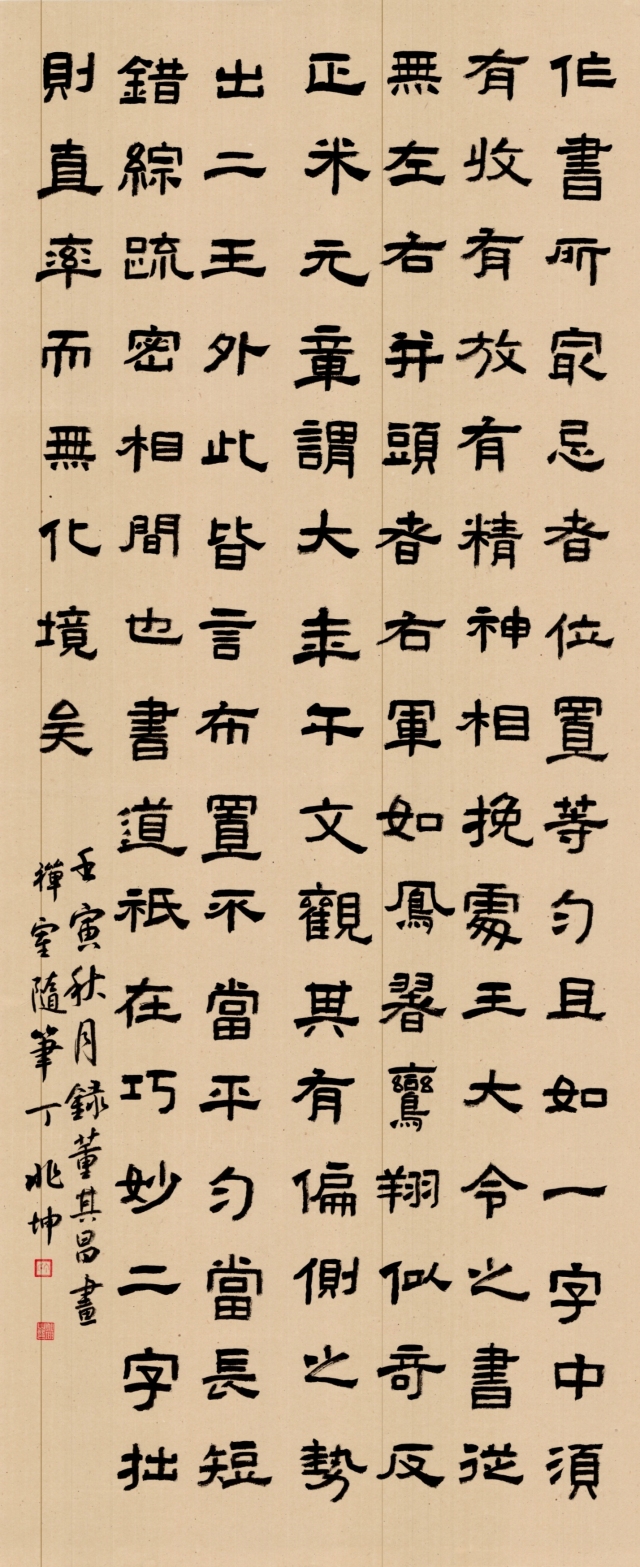 作書所㝡忌者位置等匀且如一字中須
有收有放有精神相挽處王大令之書從
無左右并頭者右軍如鳳翥鸞翔似奇反
正米元章謂大年千文觀其有偏側之勢
出二王外此皆言布置不當平匀當長短
錯綜疏密相間也書道祇在巧妙二字拙
則直率而無化境矣
壬寅秋月録董其昌畫
禪室隨筆丁兆坤